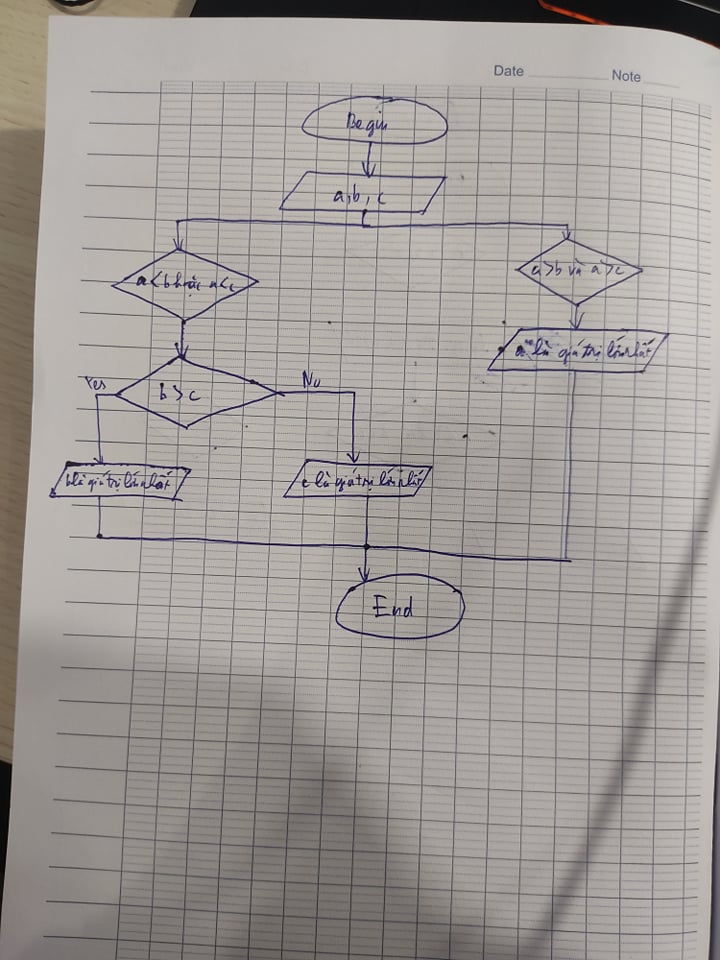 Date Note
Begin
a, b, c
a<b hoặc a<c
a>b và a>c
a là giá trị lớn nhất
Yes
b>c
No
b là giá trị lớn nhất
c là giá trị lớn nhất
End